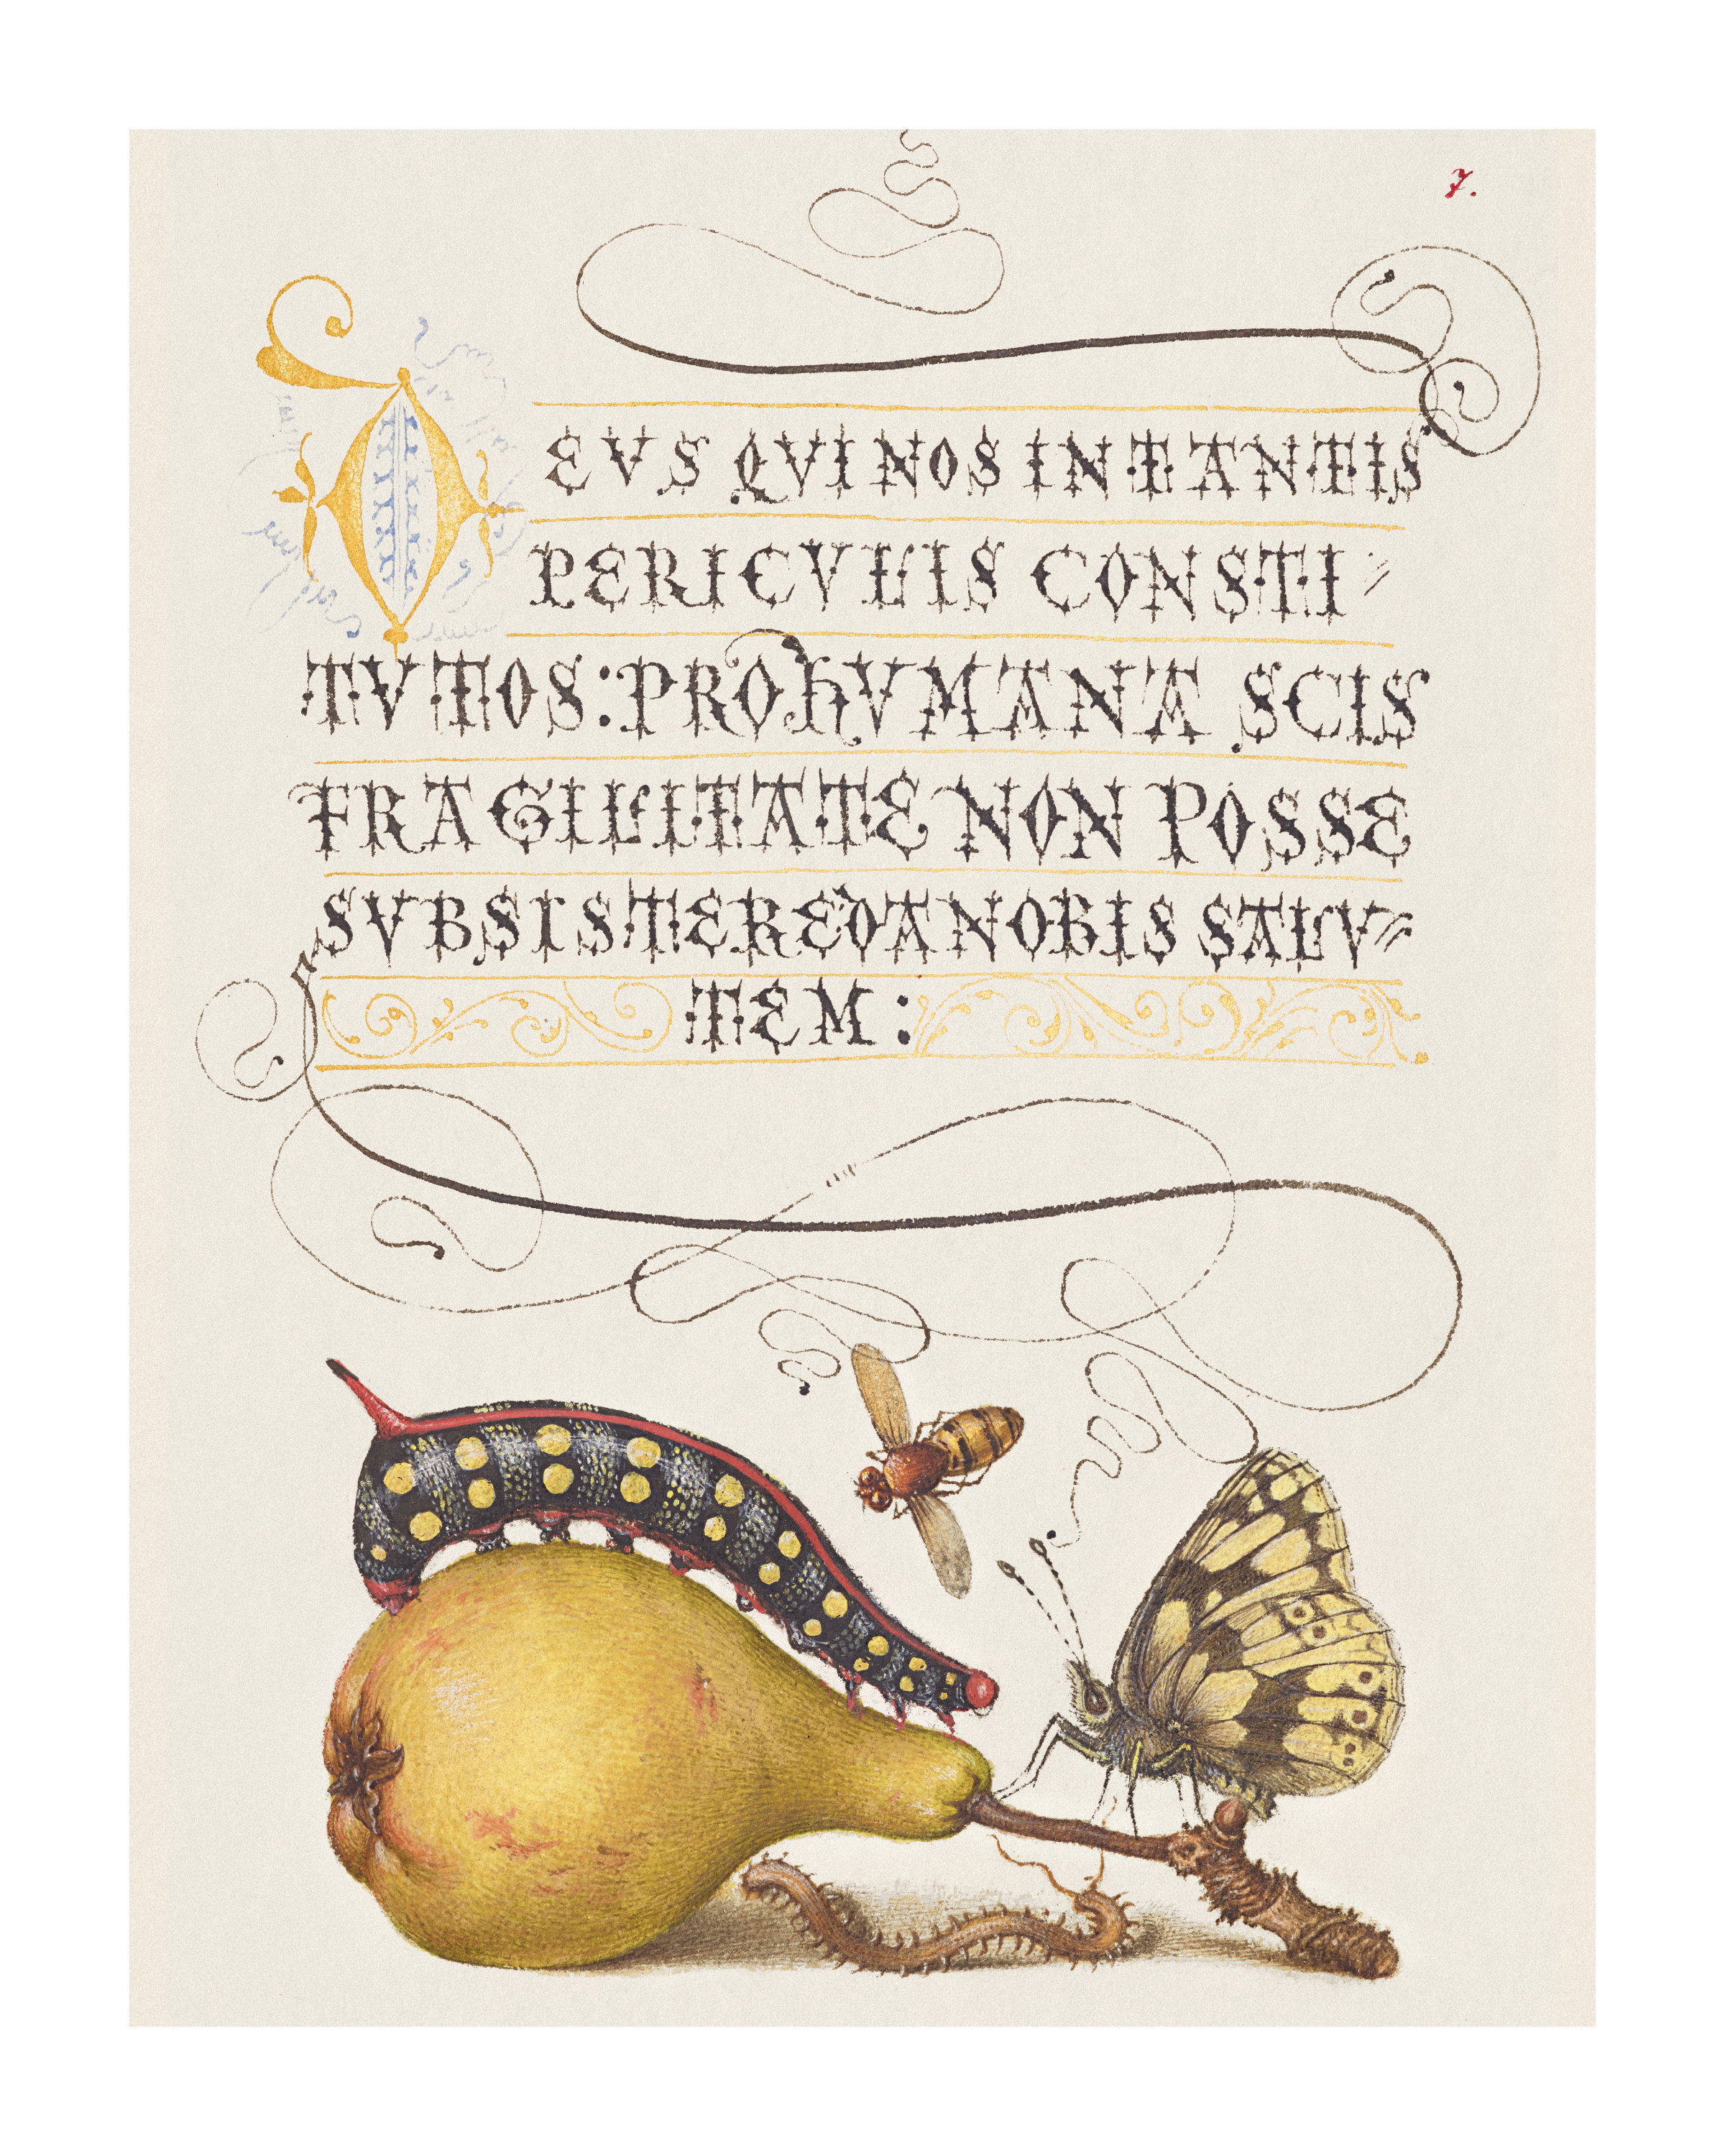 7.
DEVS QVI NOS IN TANTIS
PERICVLIS CONSTI⸗
TVTOS: PRO HVMANA SCIS
FRAGILITATE NON POSSE
SVBSISTERE DA NOBIS SALV⸗
TEM: